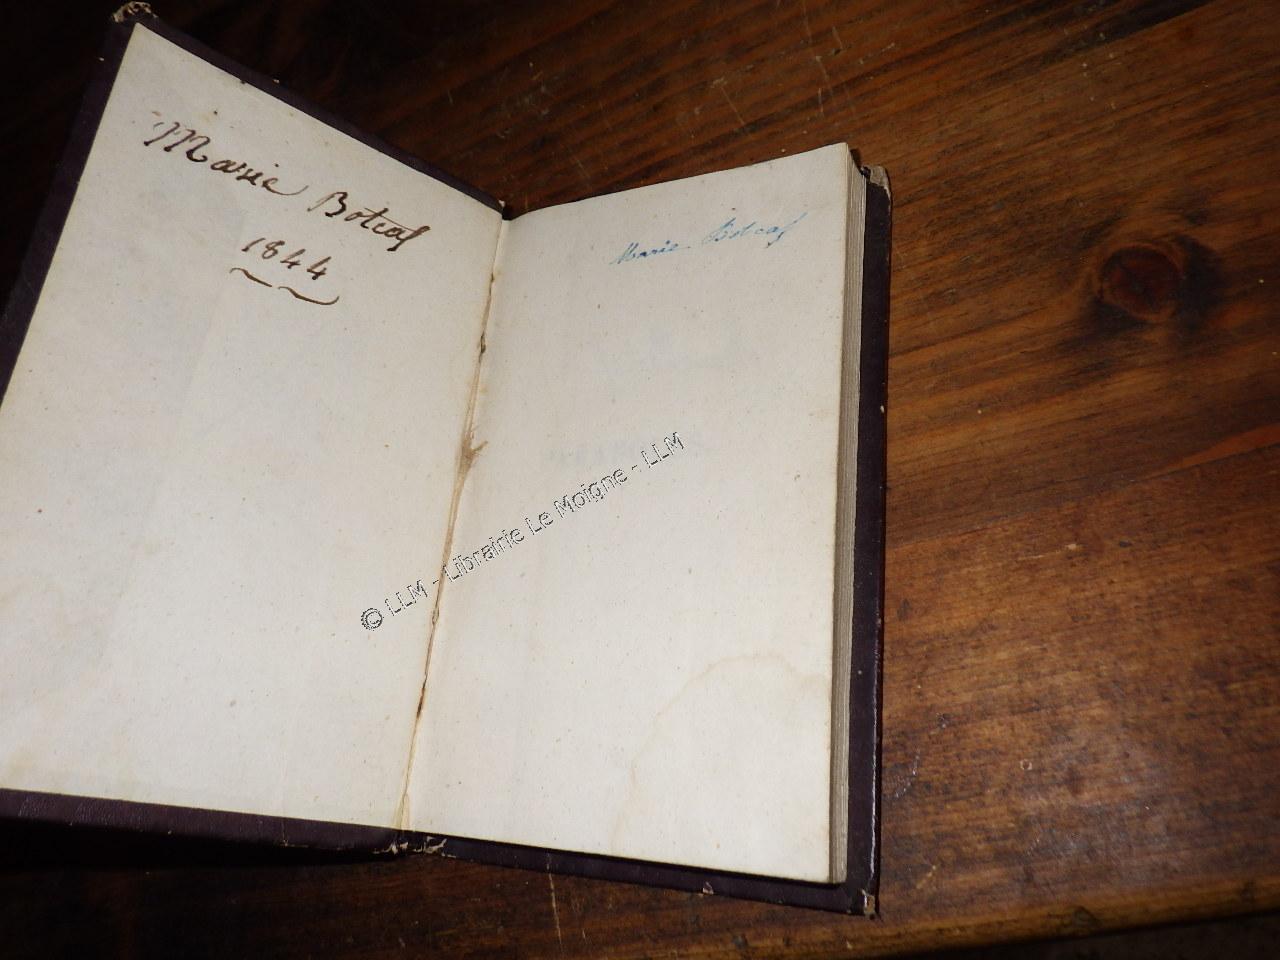 Marie Botcaf
1844
Marie Botcaf
© LLM - Librairie Le Moigne - LLM